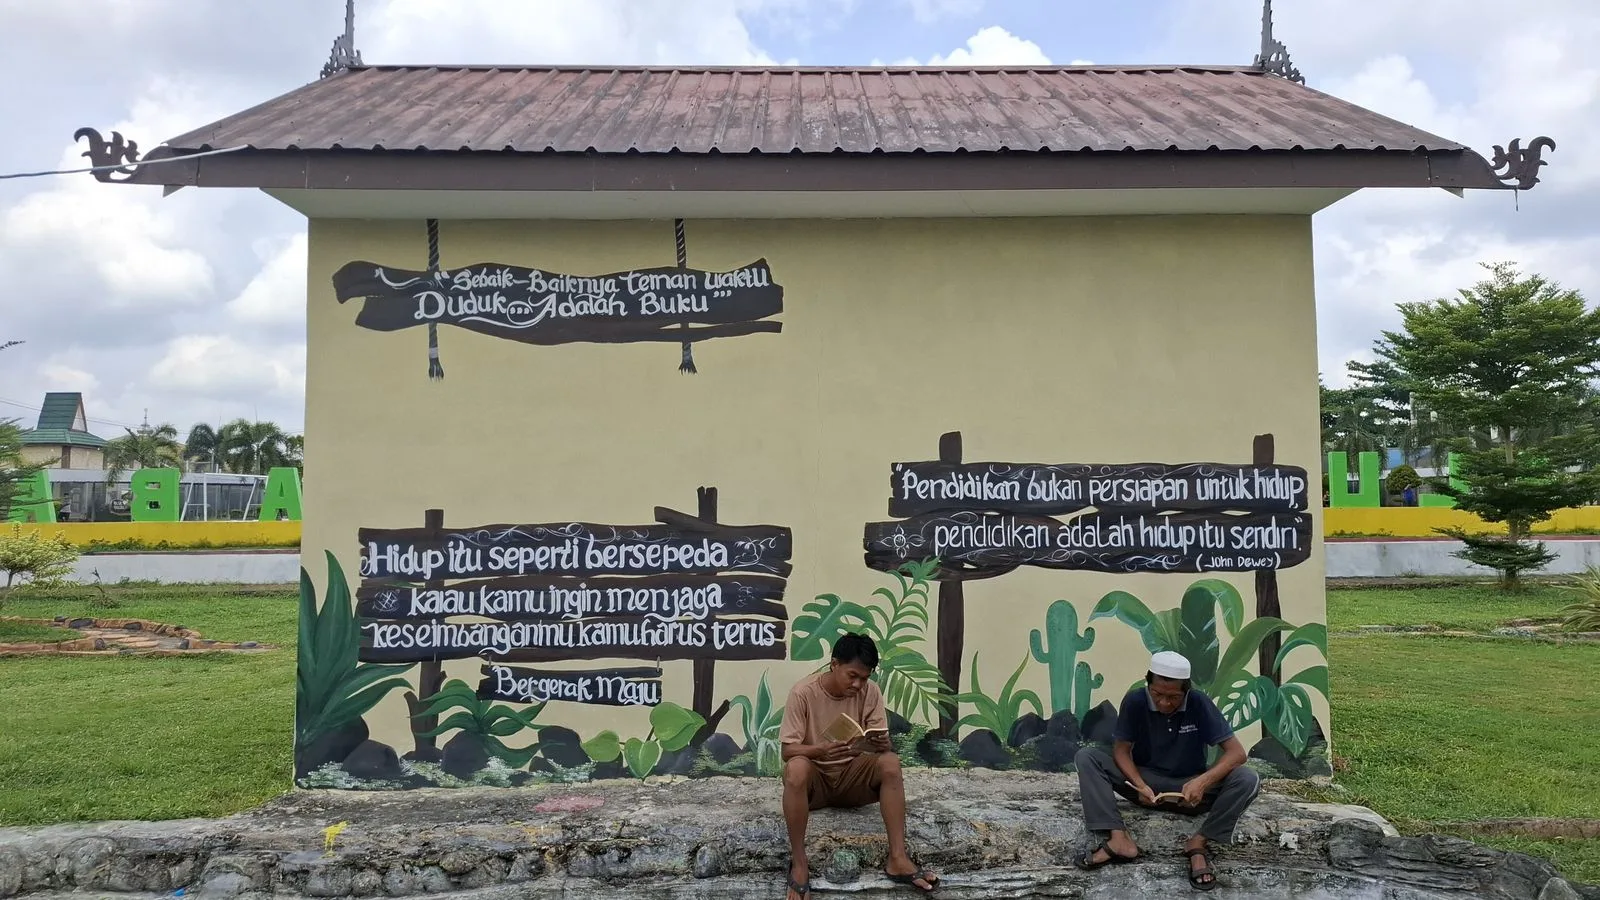 "Sebaik-Baiknya teman waktu
Duduk... Adalah Buku"
"Pendidikan bukan persiapan untuk hidup,
pendidikan adalah hidup itu sendiri"
(John Dewey)
Hidup itu seperti bersepeda
kalau kamu ingin menjaga
keseimbanganmu kamu harus terus
Bergerak Maju
A B A
U